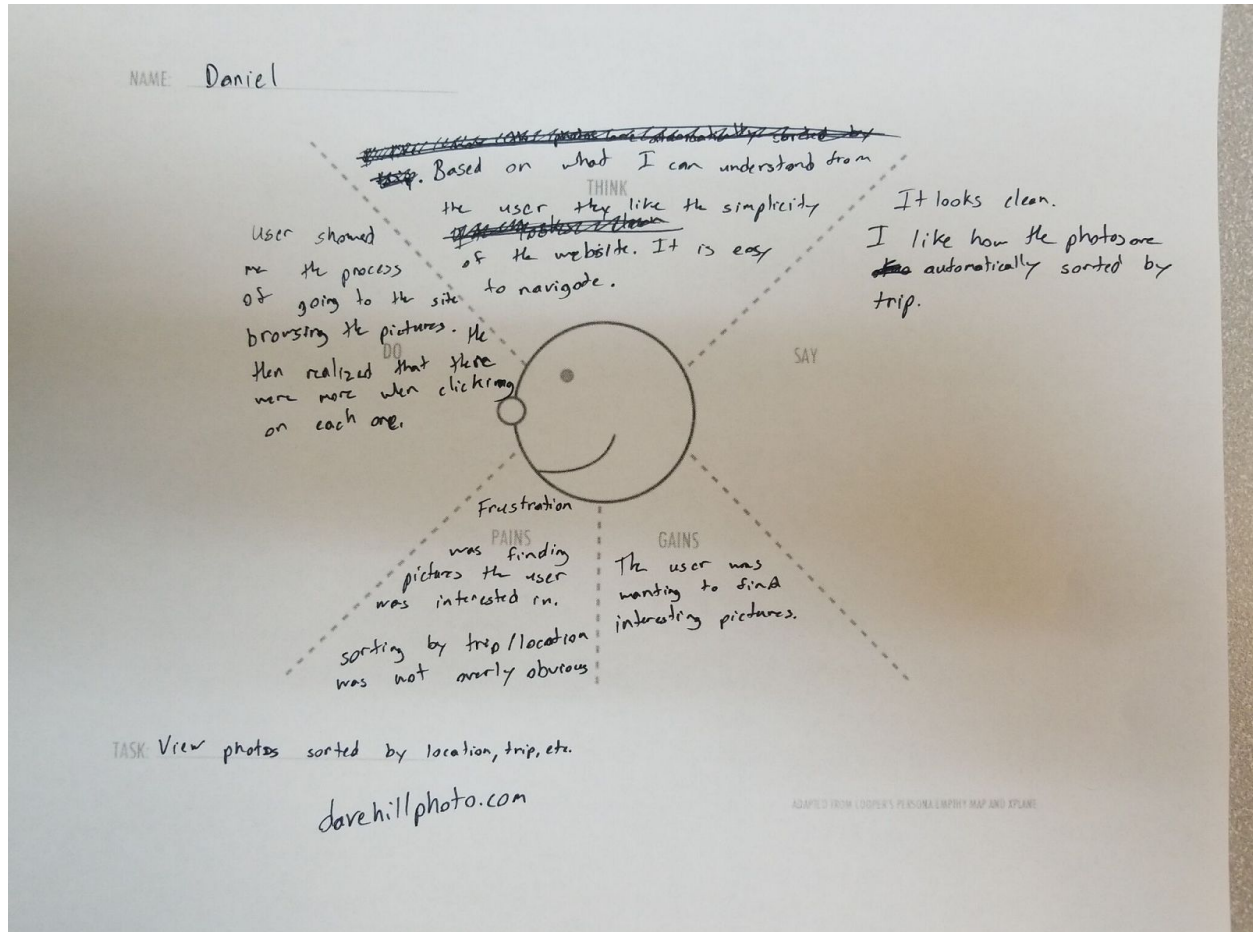 NAME: Daniel
Based on what I can understand from
THINK
the user they like the simplicity
of the website. It is easy
to navigate.
User showed
me the process
of going to the site
browsing the pictures. He
DO
then realized that there
were more when clicking
on each one.
It looks clean.
I like how the photos are
automatically sorted by
trip.
SAY
Frustration
PAINS
was finding
pictures the user
was interested in.
sorting by trip/location
was not overly obvious
GAINS
The user was
wanting to find
interesting pictures.
TASK: View photos sorted by location, trip, etc.
davehillphoto.com
ADAPTED FROM COOPER'S PERSONA EMPTHY MAP AND XPLANE